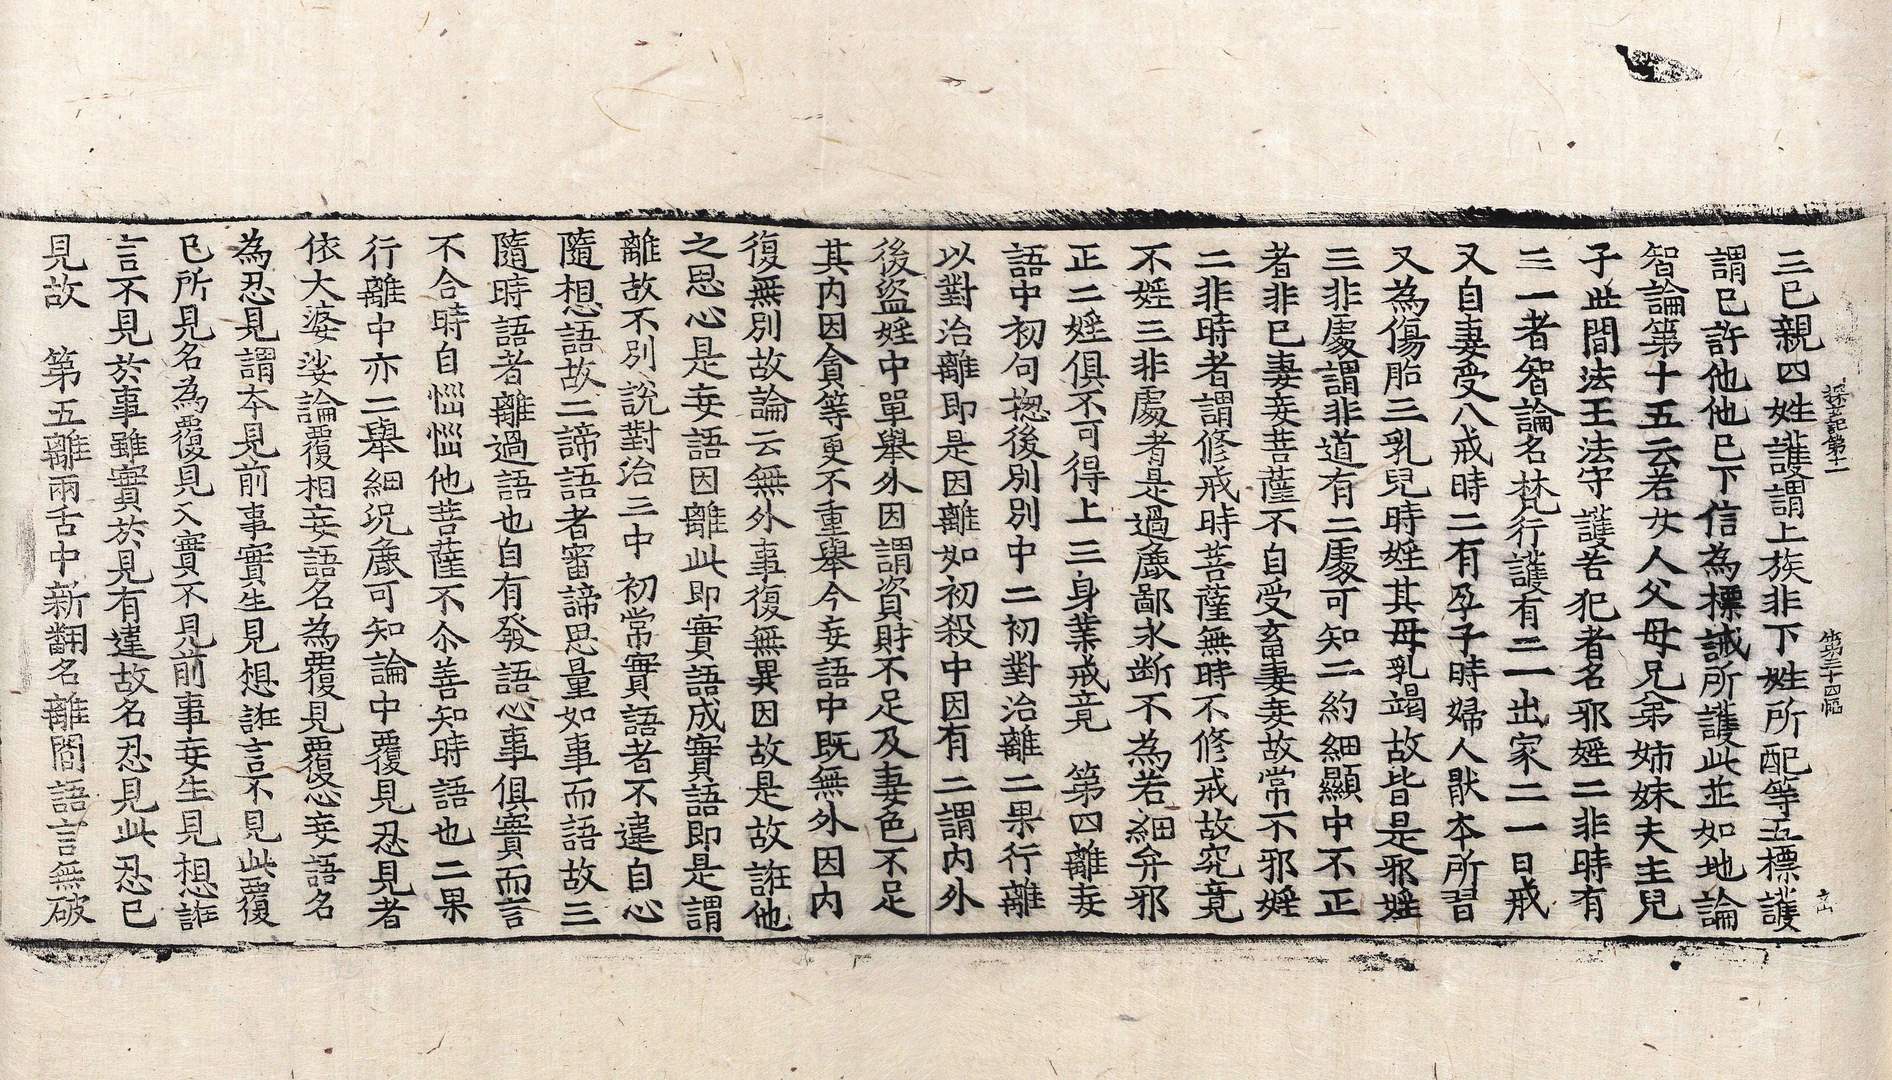 探玄記第十一　第三十四幅　立山
三已親四姓護謂上族非下姓所配等五標護
謂已許他他已下信為標誡所護此並如地論
智論第十五云若女人父母兄弟姉妹夫主兒
子世間法王法守護若犯者名邪婬二非時有
三一者智論名梵行護有二一出家二一日戒
又自妻受八戒時二有孕子時婦人猒本所習
又為傷胎三乳兒時婬其母乳竭故皆是邪婬
三非處謂非道有二處可知二約細顯中不正
者非已妻妾菩薩不自受畜妻妾故常不邪婬
二非時者謂修戒時菩薩無時不修戒故究竟
不婬三非處者是過麁鄙永断不為若細弁邪
正二婬俱不可得上三身業戒竟　第四離妄
語中初句揔後別別中二初對治離二果行離
以對治離即是因離如初殺中因有二謂内外
後盜婬中單舉外因謂資財不足及妻色不足
其内因貪等更不重舉今妄語中既無外因内
復無別故論云無外事復無異因故是故誑他
之思心是妄語因離此即實語成實語即是謂
離故不別說對治三中初常實語者不違自心
隨想語故二諦語者審諦思量如事而語故三
隨時語者離過語也自有發語心事俱實而言
不合時自惱惱他菩薩不尒善知時語也二果
行離中亦二舉細況麁可知論中覆見忍見者
依大婆娑論覆相妄語名為覆見覆心妄語名
為忍見謂本見前事實生見想誑言不見此覆
已所見名為覆見又實不見前事妄生見想誑
言不見於事雖實於見有違故名忍見此忍已
見故　第五離兩舌中新翻名離間語言無破